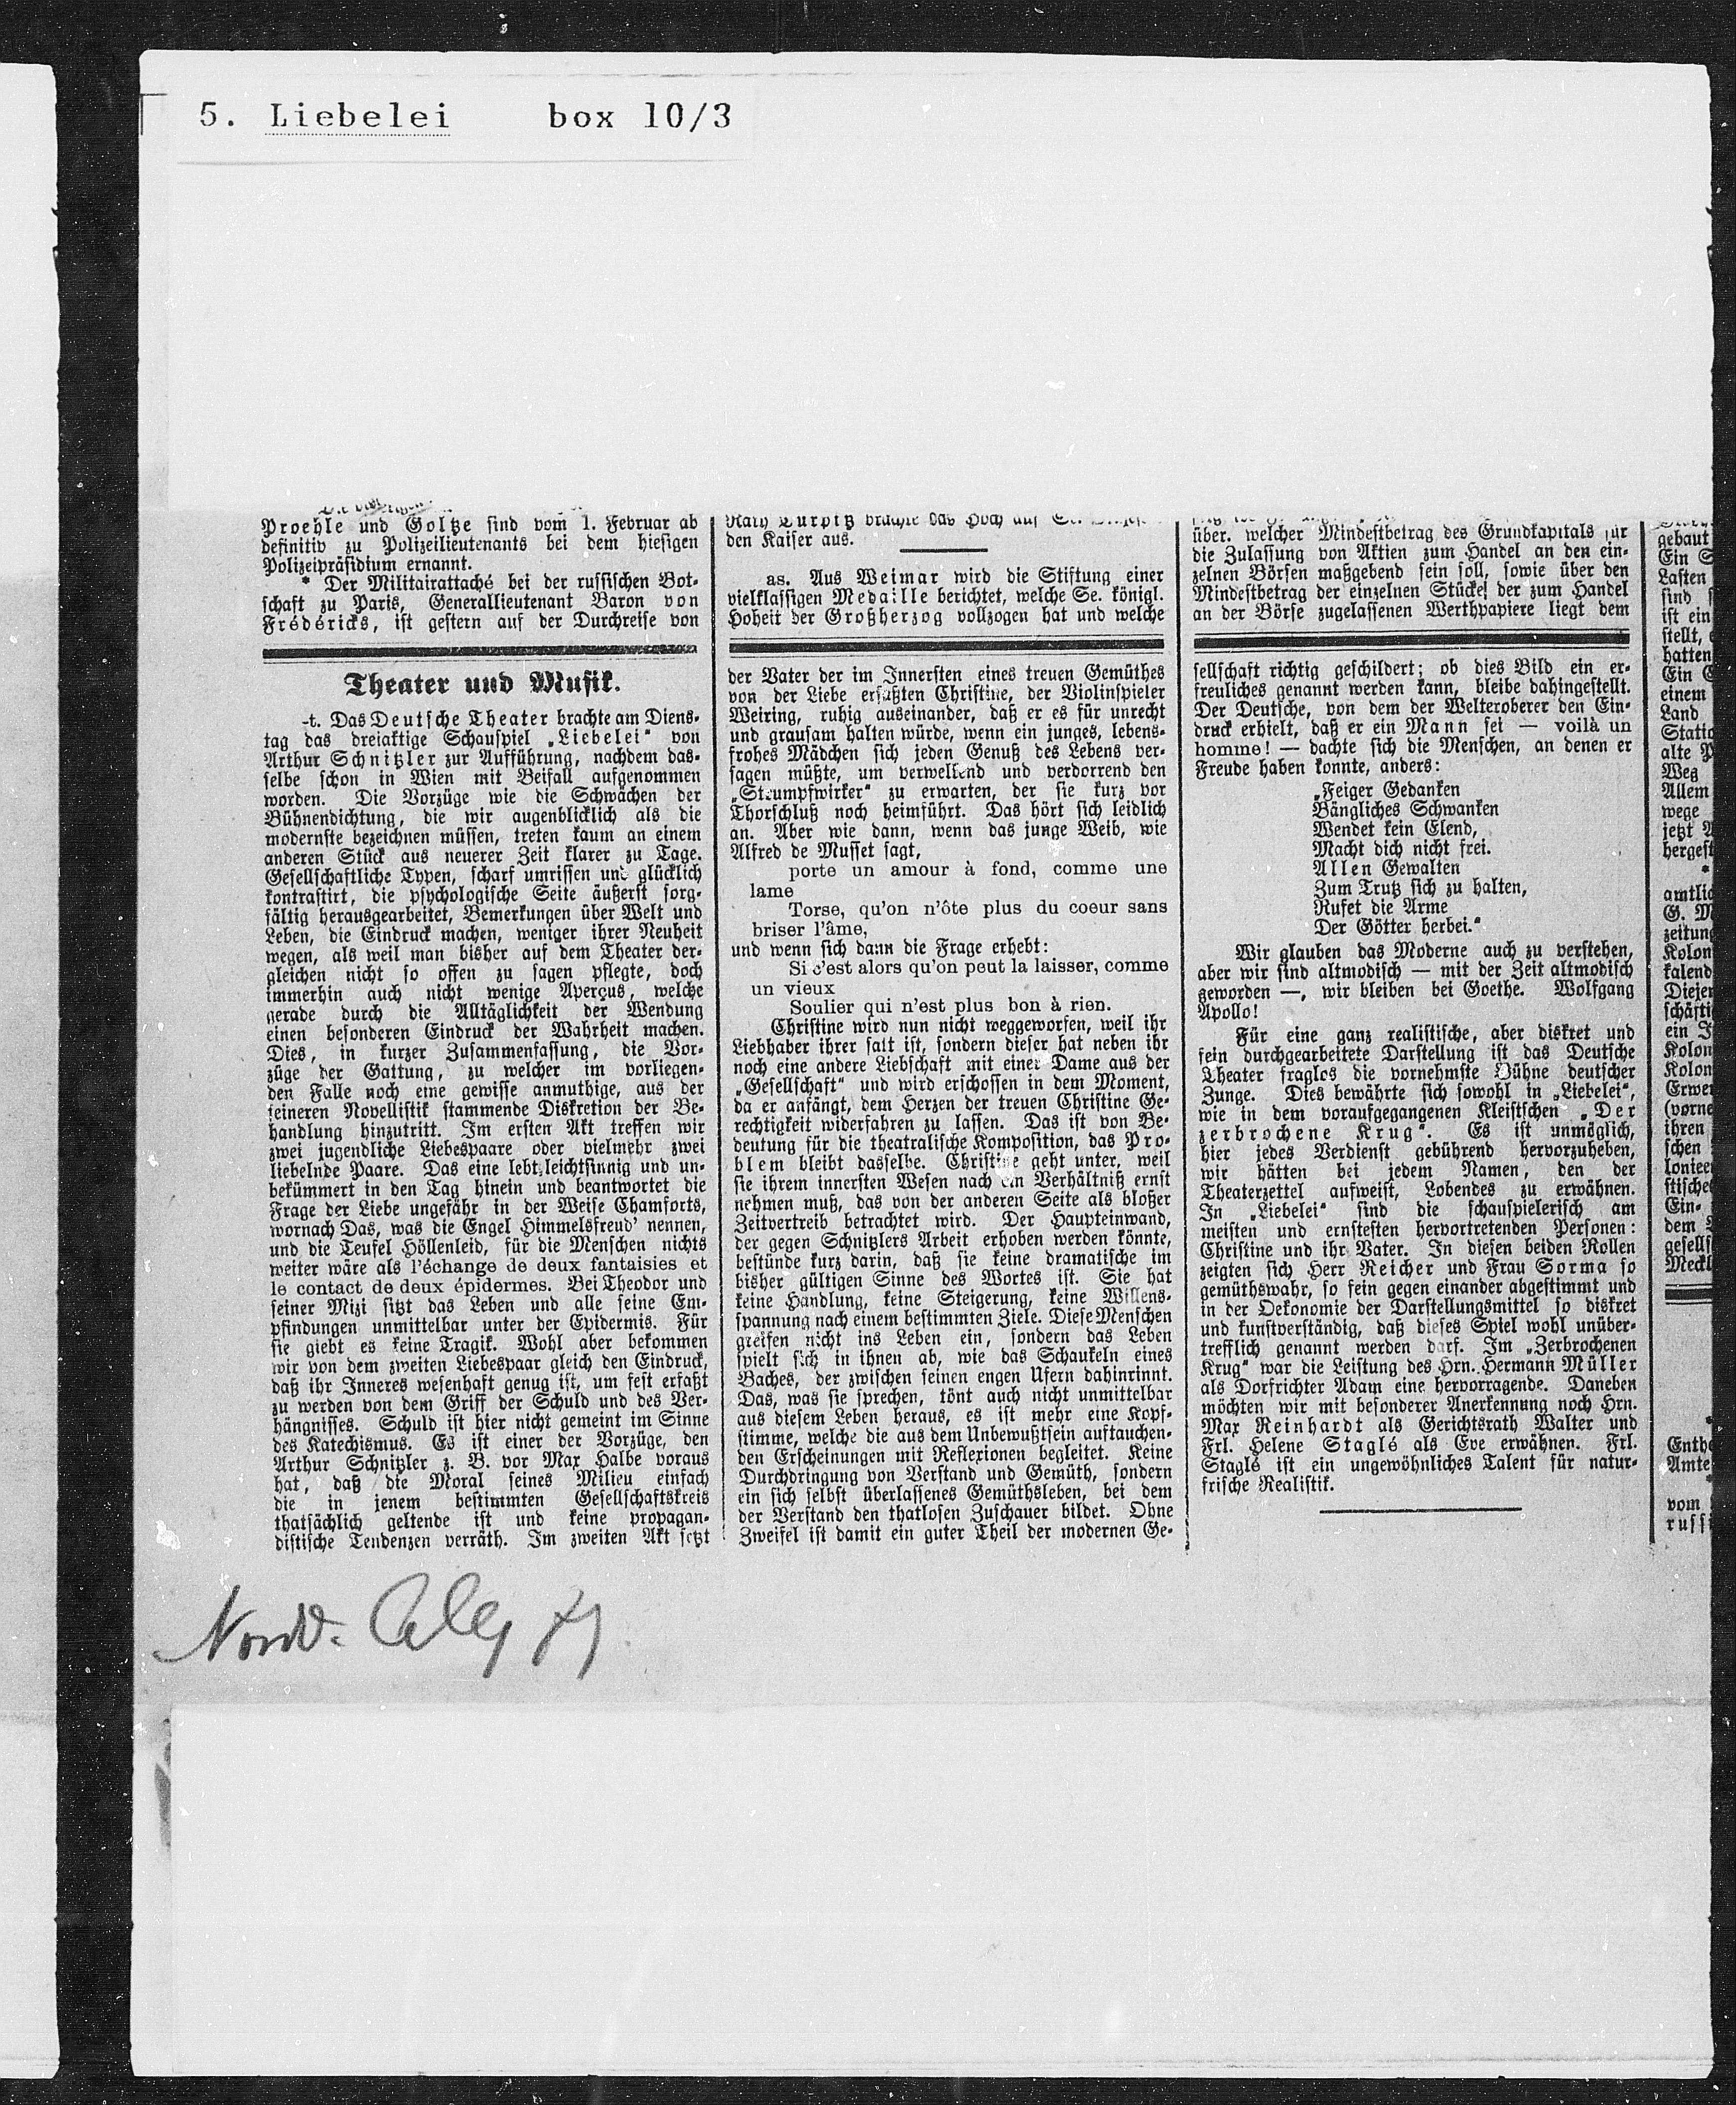 5. Liebelei box 10/3
Proehle und Goltze sind vom 1. Februar ab
definitiv zu Polizeilieutenants bei dem hiesigen
Polizeipräsidium ernannt.
* Der Militairattaché bei der russischen Bot-
schaft zu Paris, Generallieutenant Baron von
Frédéricks, ist gestern auf der Durchreise von
Theater und Musik.
-t. Das Deutsche Theater brachte am Diens-
tag das dreiaktige Schauspiel „Liebelei“ von
Arthur Schnitzler zur Aufführung, nachdem das-
selbe schon in Wien mit Beifall aufgenommen
worden. Die Vorzüge wie die Schwächen der
Bühnendichtung, die wir augenblicklich als die
modernste bezeichnen müssen, treten kaum an einem
anderen Stück aus neuerer Zeit klarer zu Tage.
Gesellschaftliche Typen, scharf umrissen und glücklich
kontrastirt, die psychologische Seite äußerst sorg-
fältig herausgearbeitet, Bemerkungen über Welt und
Leben, die Eindruck machen, weniger ihrer Neuheit
wegen, als weil man bisher auf dem Theater der-
gleichen nicht so offen zu sagen pflegte, doch
immerhin auch nicht wenige Aperçus, welche
gerade durch die Alltäglichkeit der Wendung
einen besonderen Eindruck der Wahrheit machen.
Dies, in kurzer Zusammenfassung, die Vor-
züge der Gattung, zu welcher im vorliegen-
den Falle noch eine gewisse anmuthige, aus der
feineren Novellistik stammende Diskretion der Be-
handlung hinzutritt. Im ersten Akt treffen wir
zwei jugendliche Liebespaare oder vielmehr zwei
liebelnde Paare. Das eine lebt leichtsinnig und un-
bekümmert in den Tag hinein und beantwortet die
Frage der Liebe ungefähr in der Weise Chamforts,
wornach Das, was die Engel Himmelsfreud’ nennen,
und die Teufel Höllenleid, für die Menschen nichts
weiter wäre als l’échange de deux fantaisies et
le contact de deux épidermes. Bei Theodor und
seiner Mizi sitzt das Leben und alle seine Em-
pfindungen unmittelbar unter der Epidermis. Für
sie giebt es keine Tragik. Wohl aber bekommen
wir von dem zweiten Liebespaar gleich den Eindruck,
daß ihr Inneres wesenhaft genug ist, um fest erfaßt
zu werden von dem Griff der Schuld und des Ver-
hängnisses. Schuld ist hier nicht gemeint im Sinne
des Katechismus. Es ist einer der Vorzüge, den
Arthur Schnitzler z. B. vor Max Halbe voraus
hat, daß die Moral seines Milieu einfach
die in jenem bestimmten Gesellschaftskreis
thatsächlich geltende ist und keine propagan-
distische Tendenzen verräth. Im zweiten Akt setzt
den Kaiser aus.
as. Aus Weimar wird die Stiftung einer
vielklassigen Medaille berichtet, welche Se. königl.
Hoheit der Großherzog vollzogen hat und welche
der Vater der im Innersten eines treuen Gemüthes
von der Liebe erfaßten Christine, der Violinspieler
Weiring, ruhig auseinander, daß er es für unrecht
und grausam halten würde, wenn ein junges, lebens-
frohes Mädchen sich jeden Genuß des Lebens ver-
sagen müßte, um verwelkend und verdorrend den
„Strumpfwirker“ zu erwarten, der sie kurz vor
Thorschluß noch heimführt. Das hört sich leidlich
an. Aber wie dann, wenn das junge Weib, wie
Alfred de Musset sagt,
porte un amour à fond, comme une
lame
Torse, qu’on n’ôte plus du coeur sans
briser l’âme,
und wenn sich dann die Frage erhebt:
Si c’est alors qu’on peut la laisser, comme
un vieux
Soulier qui n’est plus bon à rien.
Christine wird nun nicht weggeworfen, weil ihr
Liebhaber ihrer satt ist, sondern dieser hat neben ihr
noch eine andere Liebschaft mit einer Dame aus der
„Gesellschaft“ und wird erschossen in dem Moment,
da er anfängt, dem Herzen der treuen Christine Ge-
rechtigkeit widerfahren zu lassen. Das ist von Be-
deutung für die theatralische Komposition, das Pro-
blem bleibt dasselbe. Christine geht unter, weil
sie ihrem innersten Wesen nach ein Verhältniß ernst
nehmen muß, das von der anderen Seite als bloßer
Zeitvertreib betrachtet wird. Der Haupteinwand,
der gegen Schnitzlers Arbeit erhoben werden könnte,
bestünde kurz darin, daß sie keine dramatische im
bisher gültigen Sinne des Wortes ist. Sie hat
keine Handlung, keine Steigerung, keine Willens-
spannung nach einem bestimmten Ziele. Diese Menschen
greifen nicht ins Leben ein, sondern das Leben
spielt sich in ihnen ab, wie das Schaukeln eines
Baches, der zwischen seinen engen Ufern dahinrinnt.
Das, was sie sprechen, tönt auch nicht unmittelbar
aus diesem Leben heraus, es ist mehr eine Kopf-
stimme, welche die aus dem Unbewußtsein auftauchen-
den Erscheinungen mit Reflexionen begleitet. Keine
Durchdringung von Verstand und Gemüth, sondern
ein sich selbst überlassenes Gemüthsleben, bei dem
der Verstand den thatlosen Zuschauer bildet. Ohne
Zweifel ist damit ein guter Theil der modernen Ge-
über, welcher Mindestbetrag des Grundkapitals für
die Zulassung von Aktien zum Handel an den ein-
zelnen Börsen maßgebend sein soll, sowie über den
Mindestbetrag der einzelnen Stücke der zum Handel
an der Börse zugelassenen Werthpapiere liegt dem
sellschaft richtig geschildert; ob dies Bild ein er-
freuliches genannt werden kann, bleibe dahingestellt.
Der Deutsche, von dem der Welteroberer den Ein-
druck erhielt, daß er ein Mann sei — voilà un
homme! — dachte sich die Menschen, an denen er
Freude haben konnte, anders:
„Feiger Gedanken
Bängliches Schwanken
Wendet kein Elend,
Macht dich nicht frei.
Allen Gewalten
Zum Trutz sich zu halten,
Rufet die Arme
Der Götter herbei.“
Wir glauben das Moderne auch zu verstehen,
aber wir sind altmodisch — mit der Zeit altmodisch
geworden —, wir bleiben bei Goethe. Wolfgang
Apollo!
Für eine ganz realistische, aber diskret und
fein durchgearbeitete Darstellung ist das Deutsche
Theater fraglos die vornehmste Bühne deutscher
Zunge. Dies bewährte sich sowohl in „Liebelei“,
wie in dem voraufgegangenen Kleistschen „Der
zerbrochene Krug“. Es ist unmöglich,
hier jedes Verdienst gebührend hervorzuheben,
wir hätten bei jedem Namen, den der
Theaterzettel aufweist, Lobendes zu erwähnen.
In „Liebelei“ sind die schauspielerisch am
meisten und ernstesten hervortretenden Personen:
Christine und ihr Vater. In diesen beiden Rollen
zeigten sich Herr Reicher und Frau Sorma so
gemüthswahr, so fein gegen einander abgestimmt und
in der Oekonomie der Darstellungsmittel so diskret
und kunstverständig, daß dieses Spiel wohl unüber-
trefflich genannt werden darf. Im „Zerbrochenen
Krug“ war die Leistung des Hrn. Hermann Müller
als Dorfrichter Adam eine hervorragende. Daneben
möchten wir mit besonderer Anerkennung noch Hrn.
Max Reinhardt als Gerichtsrath Walter und
Frl. Helene Staglé als Eve erwähnen. Frl.
Staglé ist ein ungewöhnliches Talent für natur-
frische Realistik.
gebaut
Ein
Lasten
sind
ist ein
stellt,
hatten
Ein
einem
Land
alte
Weg
Allem
wege
jetzt
amtlic
zeitung
Kolon
kalend
Diejer
schäfti
ein
Kolon
Kolon
Erwer
(vorne
ihren
schen
lontee
stische
Ein-
dem
gesells
Meckl
Enthe
Amte
vom
russi
Nordd. Allg Ztg